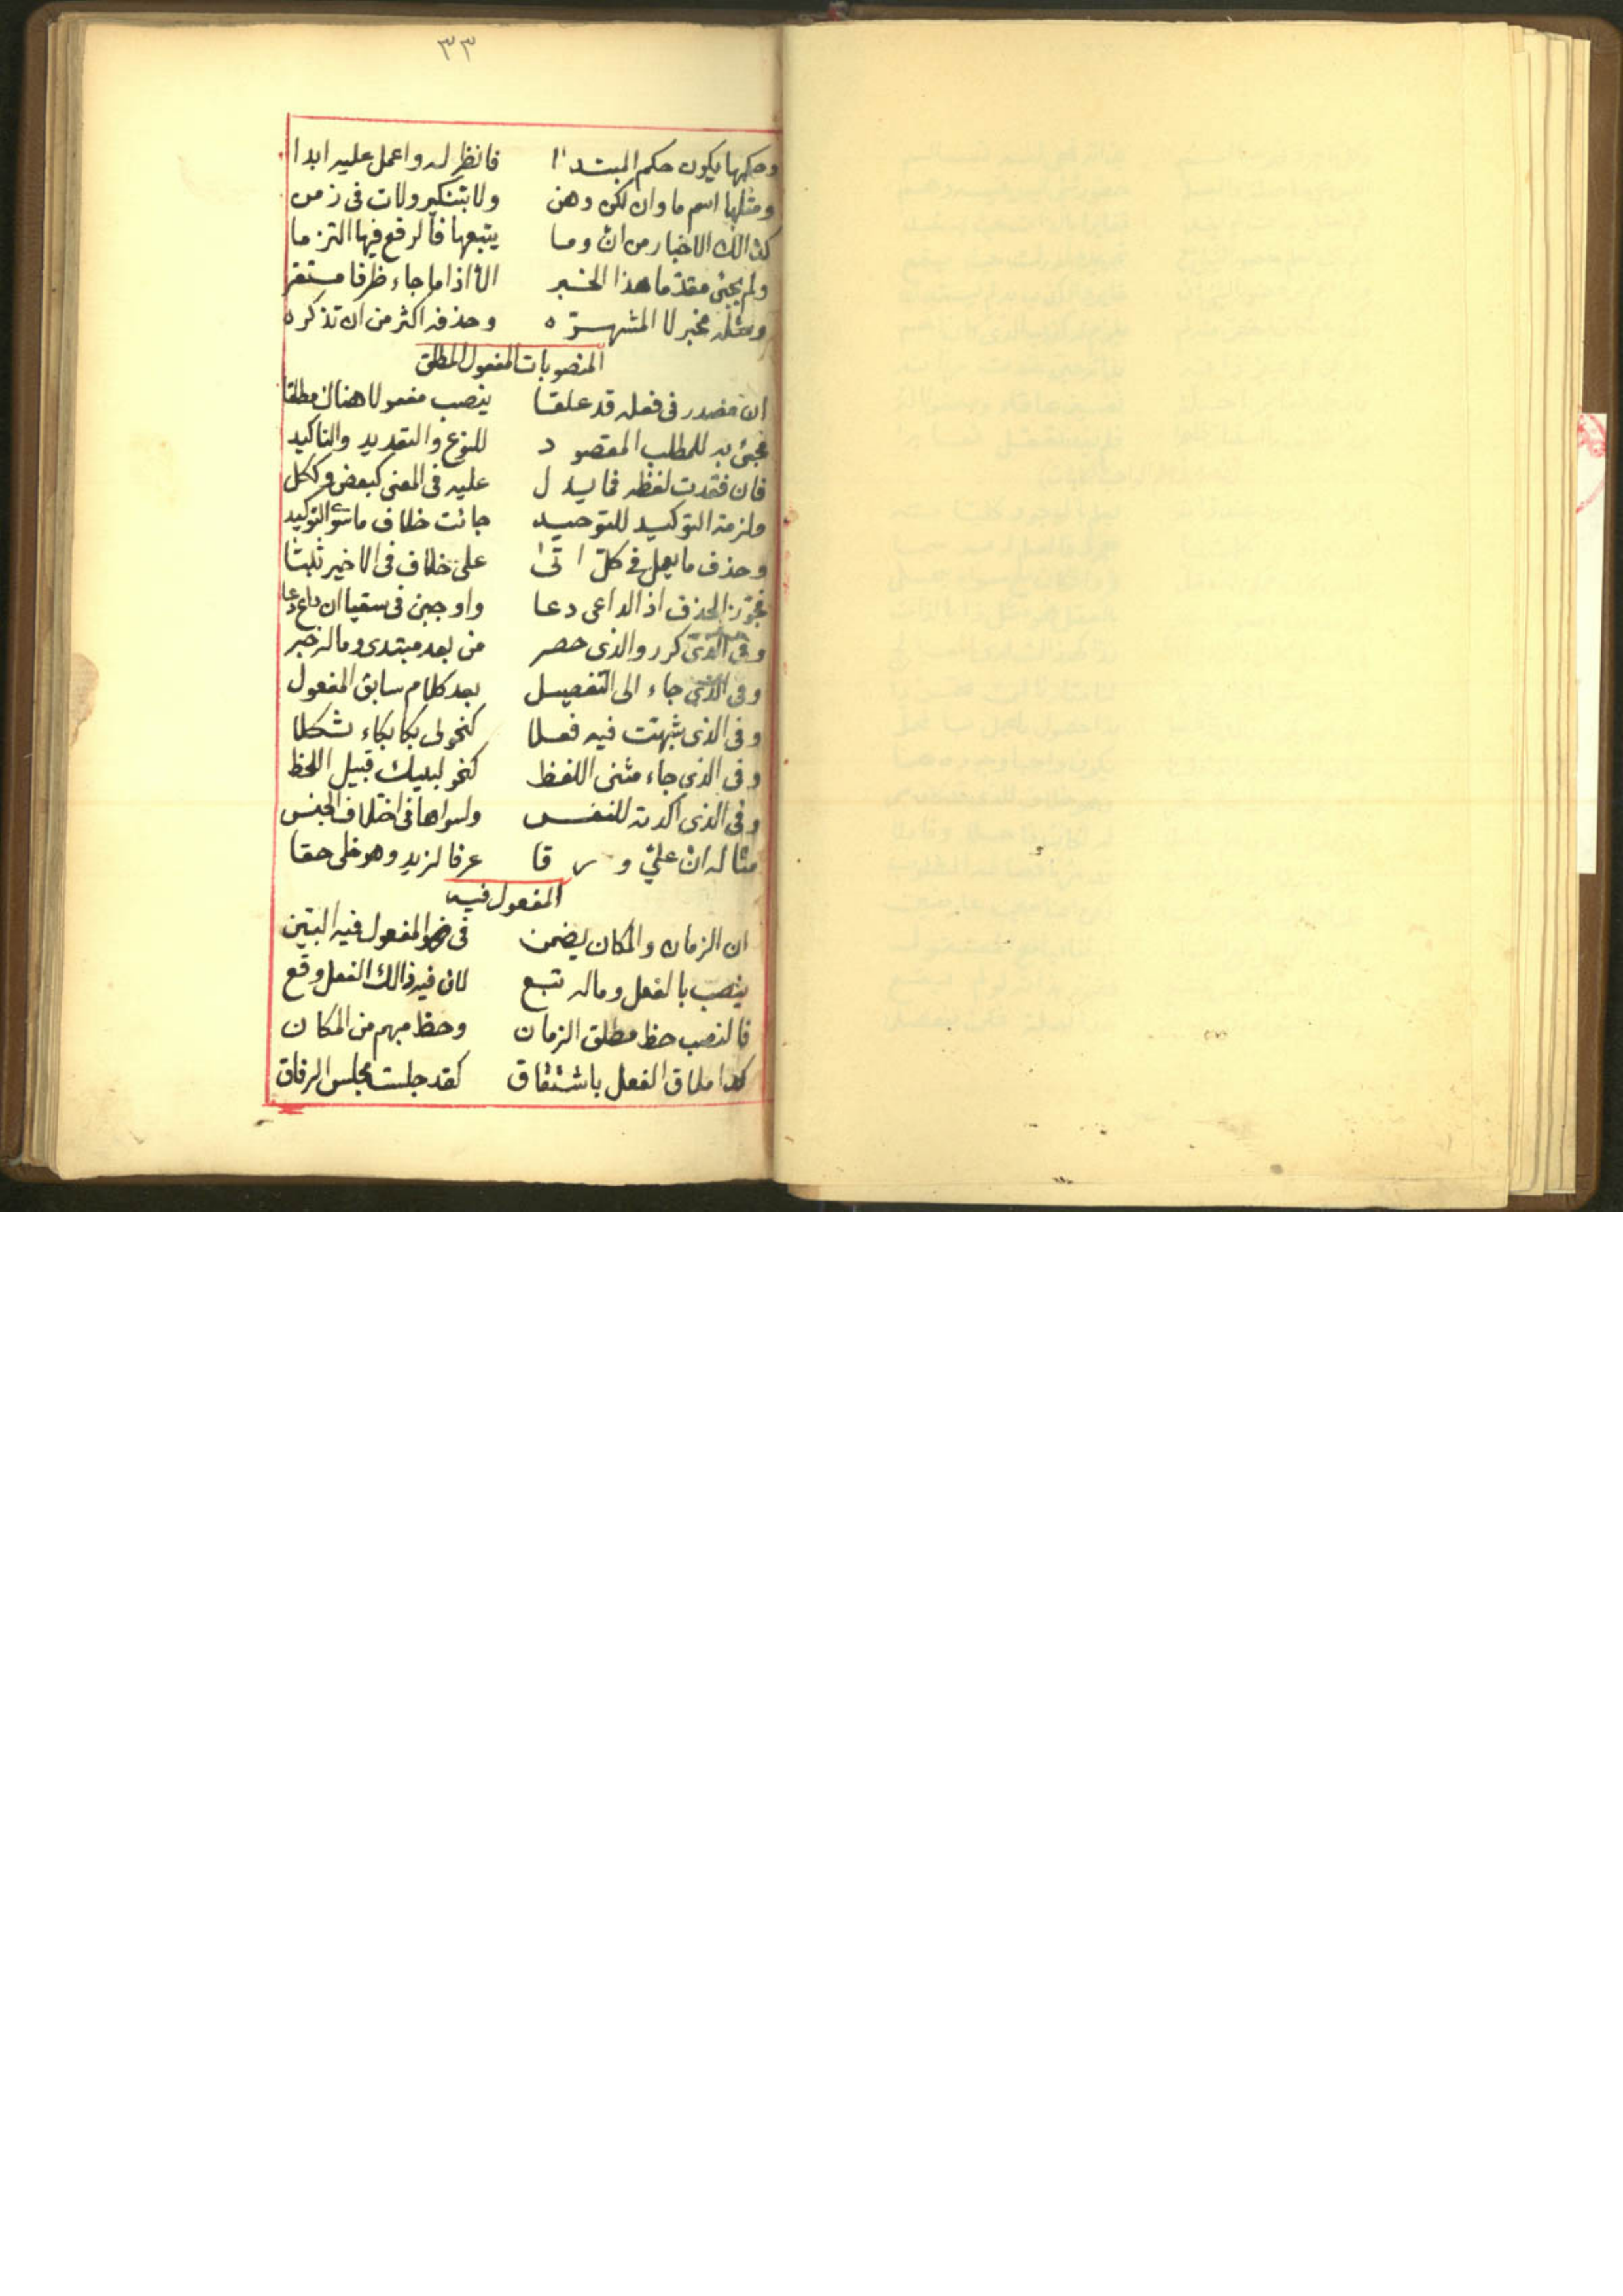 ٣٣
وحكمها يكون حكم المبتدا فانظر له واعمل عليه ابدا
ومثلها اسم ما وان لكن وهن ولا بتنكير ولات فى زمن
كذالك الاخبار من ان وما يتبعها فالرفع فيها التزما
ولم يجئ مقدما هذا الخبر الا اذا ما جاء ظرفا مستقر
ومثله خبر لا المشتهره وحذفه اكثر من ان تذكره
المنصوبات المفعول المطلق
ان مصدر فى فعله قد علقا ينصب مفعولا هناك مطلقا
يجئ به للمطلب المقصود للنوع والتعديد والتاكيد
فان فقدت لفظه فما يدل عليه فى المعنى كبعض وككل
ولزمة التوكيد للتوحيد جائت خلاف ما سوى التوكيد
وحذف ما يعمل فى كل اتى على خلاف فى الاخير ثبتا
فجوز الحذف اذ الداعى دعا واوجبن فى سقيا ان داع دعا
وفى الذى كرر والذى حصر من بعد مبتدى وماله خبر
وفى الذى جاء الى التفصيل بعد كلام سابق المفعول
وفى الذى شبهت فيه فعلا كنحو لى بكا بكاء ثكلا
وفى الذى جاء مثنى اللفظ كنحو لبيك قبيل اللحظ
وفى الذى اكدته للنفس ولسواها فى اختلاف الجنس
مثاله ان على ورقا عرفا لزيد وهو خلى حقا
المفعول فيه
ان الزمان والمكان يضمن فى فهو المفعول فيه البين
ينصب بالفعل وماله تبع لان فيه ذالك الفعل وقع
فالنصب حظ مطلق الزمان وحظ مبهم من المكان
كذا ملاق الفعل باشتقاق كقد جلست مجلس الرفاق